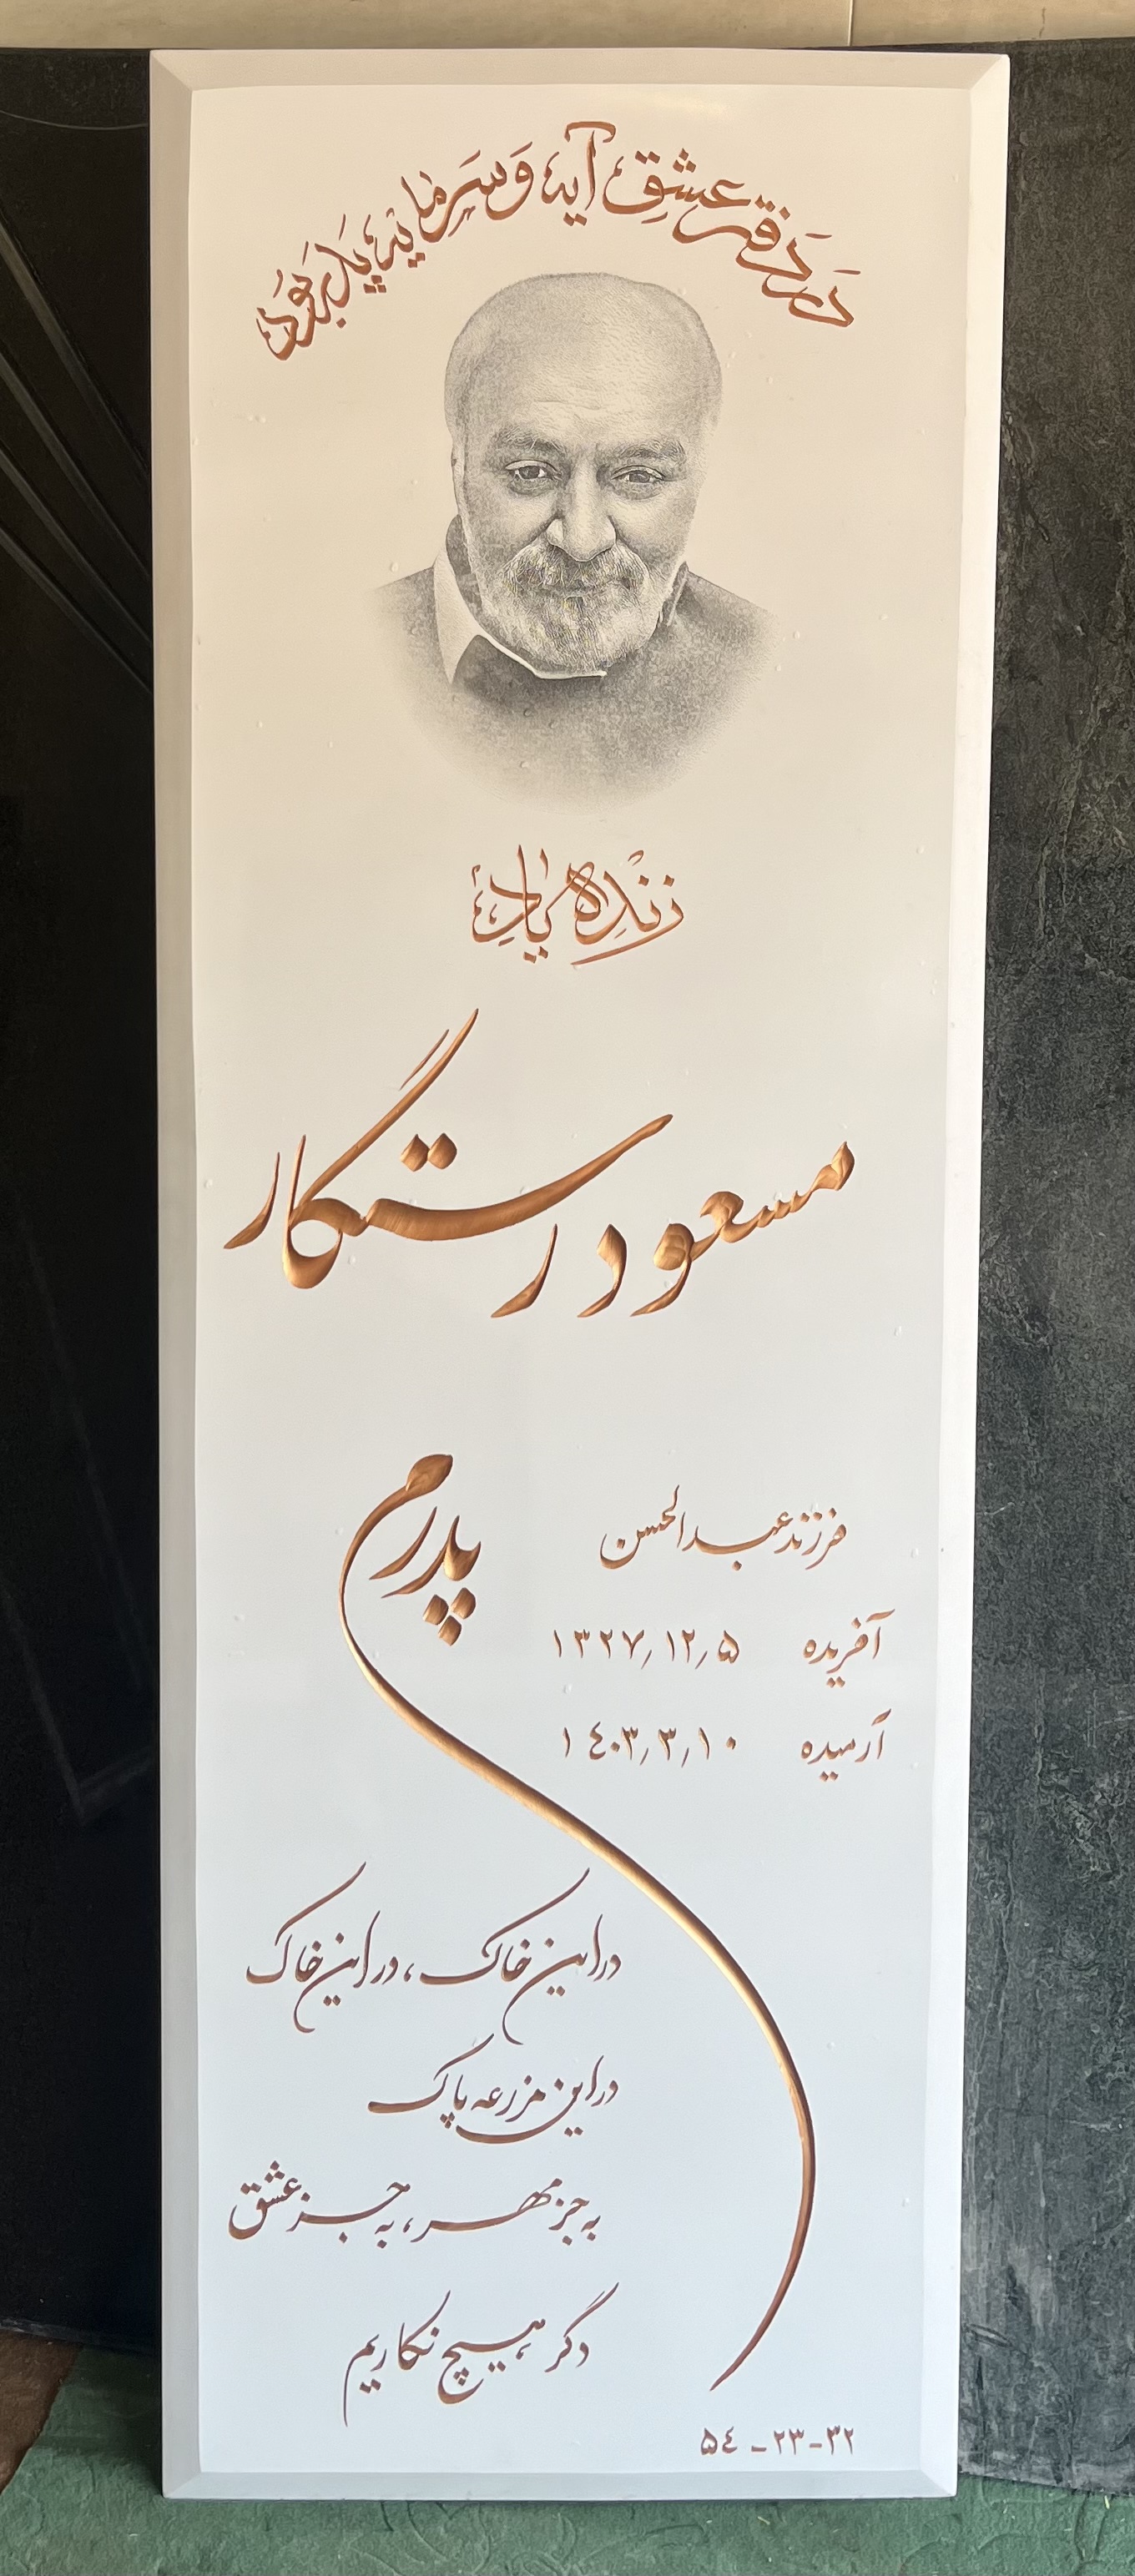 در دفتر عشق آیه و سرمایه پدر بود
زنده یاد
مسعود رستگار
پدرم
فرزند عبدالحسن
آفریده ۱۳۲۷/۱۲/۵
آرمیده ۱٤۰۳/۳/۱۰
در این خاک، در این خاک
در این مزرعه پاک
به جز مهر، به جز عشق
دگر هیچ نکاریم
۳۲-۲۳-۵٤